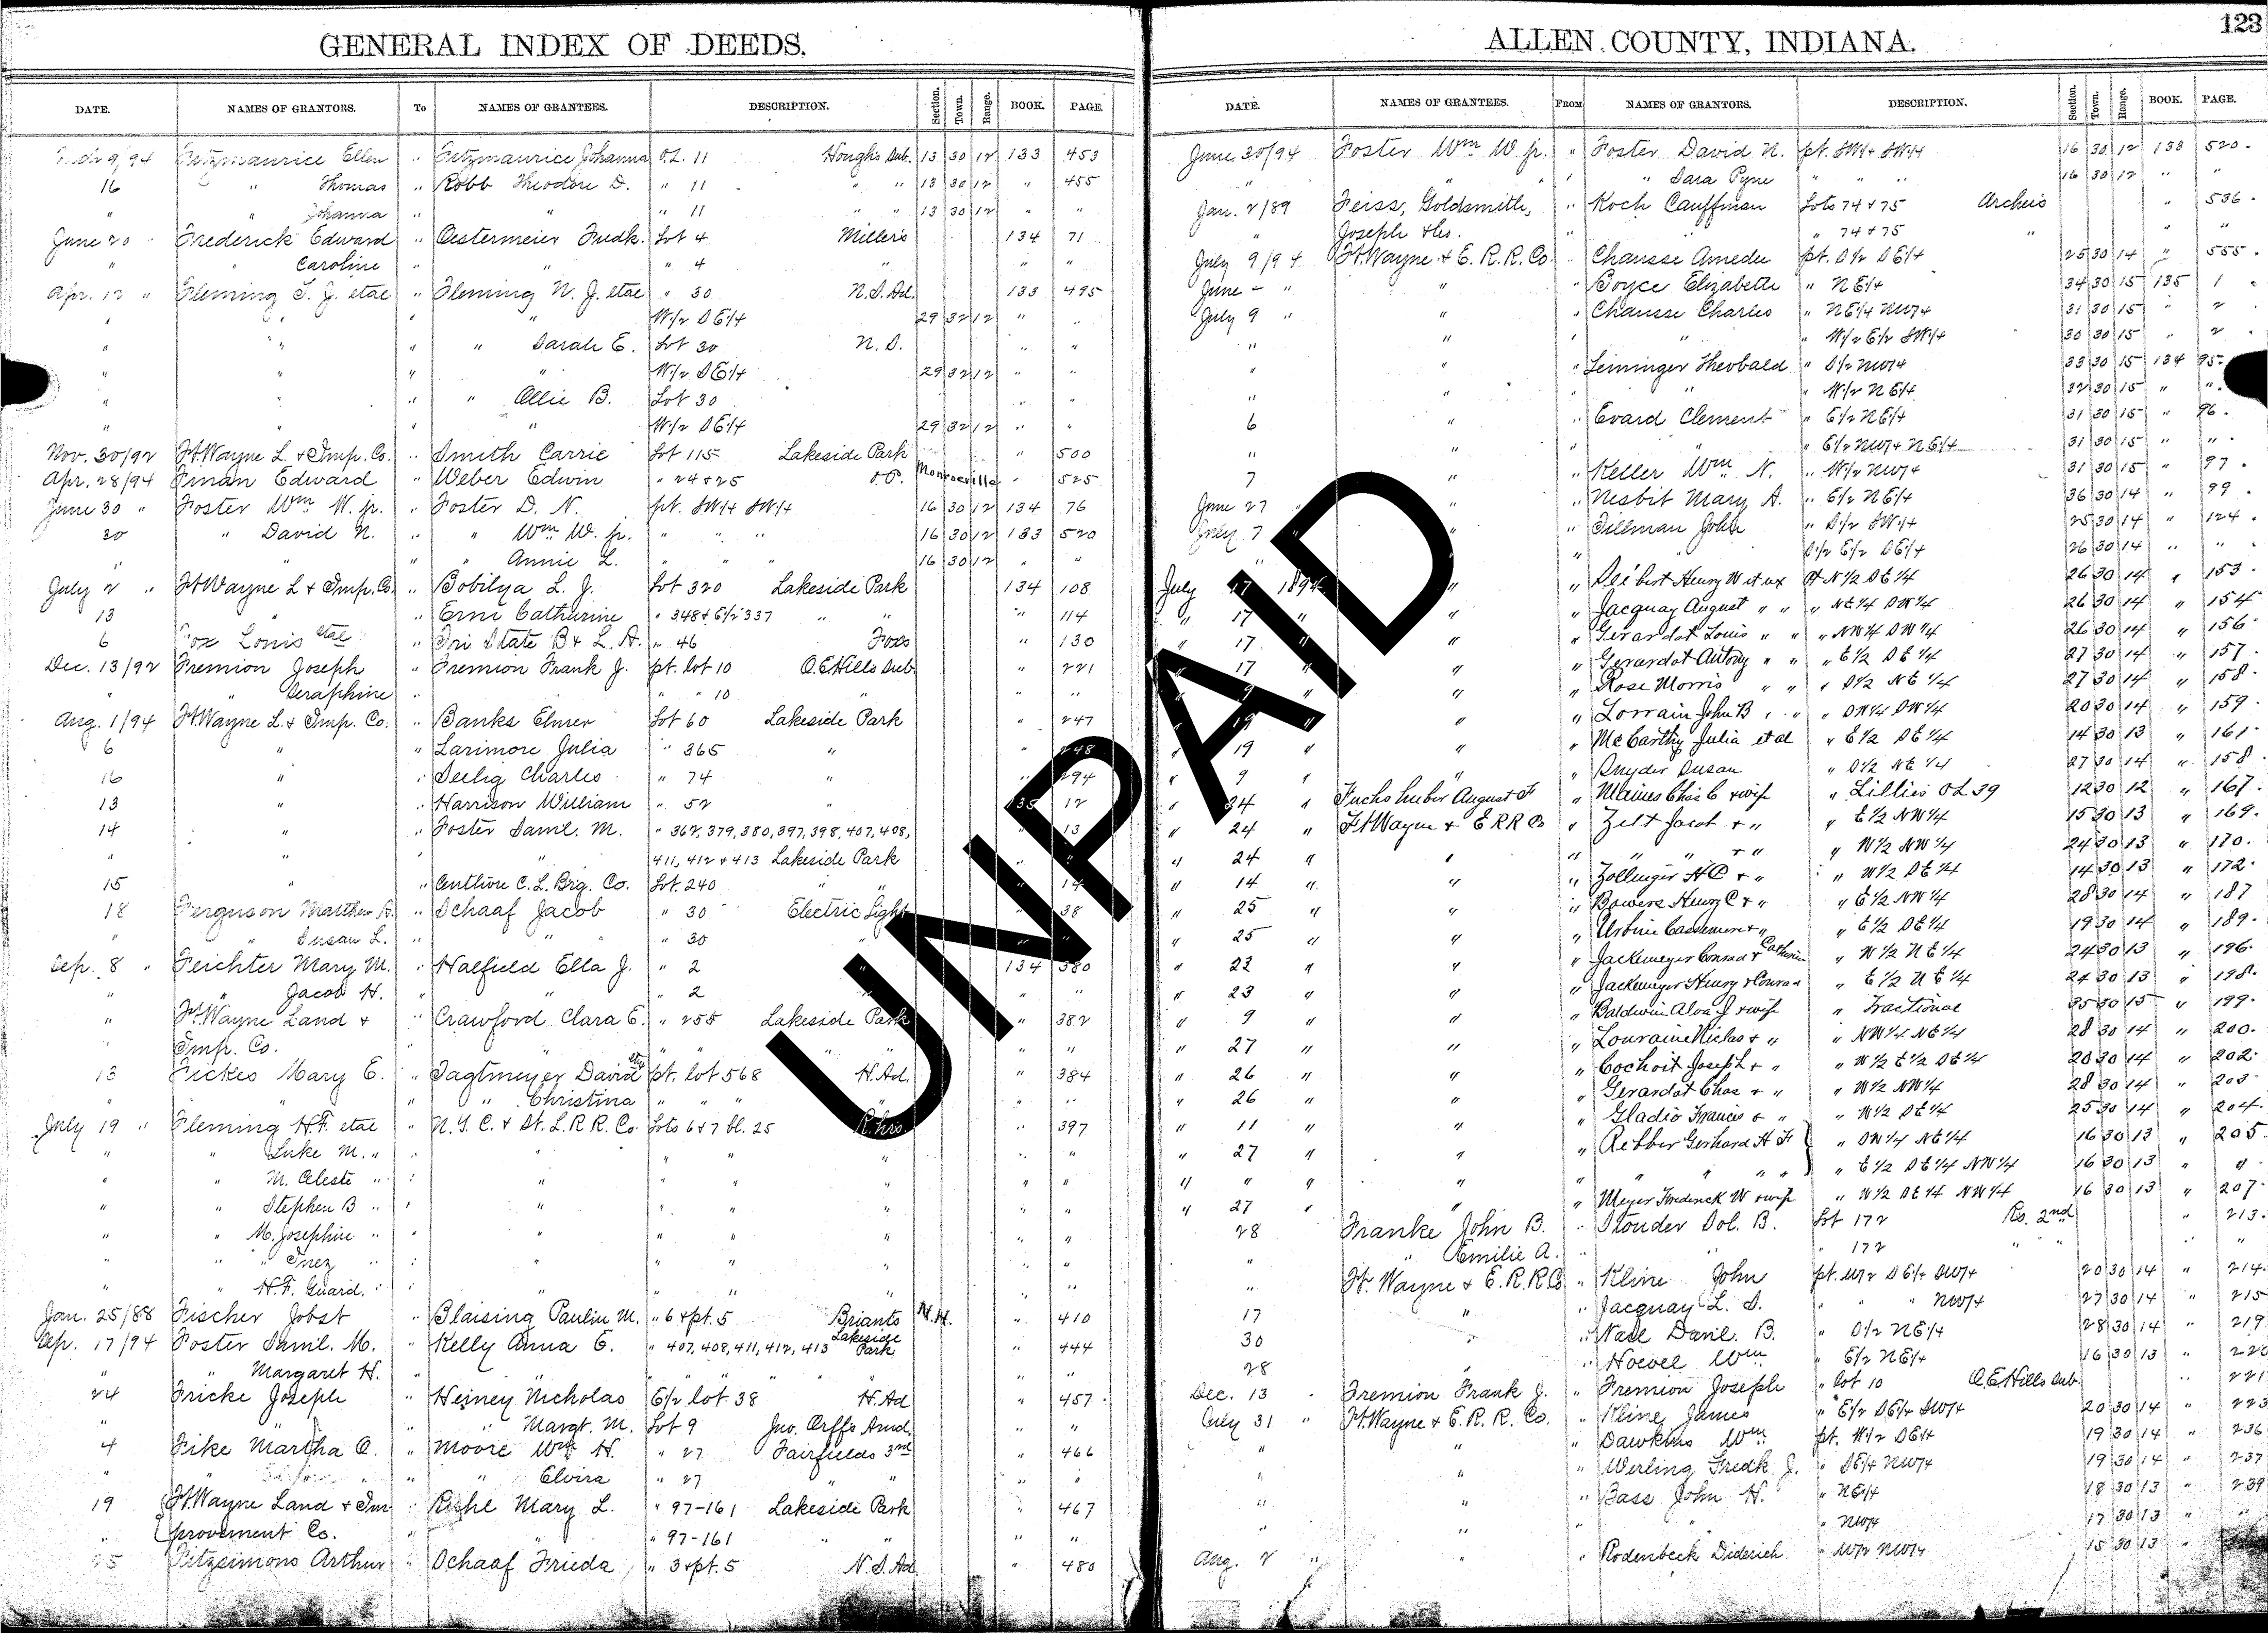 GENERAL INDEX OF DEEDS.
DATE. NAMES OF GRANTORS. To NAMES OF GRANTEES. DESCRIPTION. Section. Town. Range. BOOK. PAGE.
9/94 Fitzmaurice Ellen " Fitzmaurice Johanna O.L. 11 Hough's Sub. 13 30 12 133 453
16 " Thomas " Robb Theodore D. " 11 " " 13 30 12 " 455
" " Johanna " " " 11 " " 13 30 12 " "
June 20 Frederick Edward " Oestermeier Fredk. Lot 4 Miller's 134 71
" " Caroline " " " 4 " " "
Apr. 12 " Fleming S. J. etal " Fleming N. J. etal " 30 N.S. Ad. 133 495
" " " " W1/2 SE1/4 29 32 12 " "
" " " " Sarah E. Lot 30 N. S. " "
" " " " W1/2 SE1/4 29 32 12 " "
" " " " Ollie B. Lot 30 " "
" " " " W1/2 SE1/4 29 32 12 " "
Nov. 30/92 Ft Wayne L & Imp. Co. " Smith Carrie Lot 115 Lakeside Park " 500
Apr. 28/94 Fman Edward " Weber Edwin " 24 & 25 O.P. Monroeville " 525
June 30 " Foster Wm W. jr. " Foster D. N. pt. SW1/4 SW1/4 16 30 12 134 76
30 " David N. " " Wm W. jr. " " " 16 30 12 133 520
" " " Annie L. " " " 16 30 12 " "
July 2 " Ft Wayne L & Imp. Co. " Bobilya L. J. Lot 320 Lakeside Park 134 108
13 " " Erni Catharine " 348 & E1/2 337 " " " 114
6 Fox Louis etal " Tri State B & L. A. " 46 Foxs " 130
Dec. 13/92 Fremion Joseph " Fremion Frank J. pt. lot 10 O.E. Hills Sub. " 221
" " Seraphine " " " 10 " "
Aug. 1/94 Ft Wayne L. & Imp. Co. " Banks Elmer Lot 60 Lakeside Park " 247
6 " " Larimore Julia " 365 " " 248
16 " " Seelig Charles " 74 " " 294
13 " " Harrison William " 52 " 135 12
14 " " Foster Saml. M. " 367, 379, 380, 397, 398, 407, 408, " 13
" " " 411, 412 & 413 Lakeside Park " "
15 " " Centlivre C. L. Brg. Co. Lot 240 " " 14
18 Ferguson Matthew A. " Schaaf Jacob " 30 Electric Light 38
" " Susan L. " " " 30 " "
Sep. 8 " Feichter Mary M. " Halfield Ella J. " 2 " 134 380
" " Jacob H. " " " 2 " " "
" Ft. Wayne Land & " Crawford Clara E. " 255 Lakeside Park " 382
" Imp. Co. " " " " "
13 Fickes Mary E. " Tagtmeyer David etux pt. lot 568 H. Ad. " 384
" " " " Christina " " " " "
July 19 " Fleming H.F. etal " N.Y. C. & St. L. R R. Co. Lots 6 & 7 bl. 25 " 397
" " Luke M. " : " " " " "
" " M. Celeste " : " " " " "
" " Stephen B " " " " " " "
" " M. Josephine " " " " " "
" " Inez " : " " " " "
" " H. F. Guard. : " " " " "
Jan. 25/88 Fischer Jobst " Blaising Paulin M. " 6 & pt. 5 Briants N.H. " 410
Sep. 17/94 Foster Saml. M. " Kelly Anna E. " 407, 408, 411, 412, 413 Lakeside Park " 444
" " Margaret H. " " " " " "
24 Fricke Joseph " Heiney Nicholas E1/2 lot 38 H. Ad " 457
" " " Margt. M. Lot 9 Jno. Orffs Amd. " "
4 Fike Martha A. " Moore Wm H. " 27 Fairfields 3rd " 466
" " " Elvira " 27 " " "
19 Ft Wayne Land & Im- " Riehl Mary L. " 97-161 Lakeside Park " 467
" provement Co. " " " 97-161 " " "
25 Fitzsimons Arthur " Schaaf Frieda " 3 & pt. 5 N. S. Ad " 480
ALLEN COUNTY, INDIANA. 123
DATE. NAMES OF GRANTEES. FROM NAMES OF GRANTORS. DESCRIPTION. Section. Town. Range. BOOK. PAGE.
June 30/94 Foster Wm W. jr. " Foster David N. pt. SW1/4 SW1/4 16 30 12 133 520
" " " " Sara Pyne " " " 16 30 12 " "
Jan. 2/89 Feiss, Goldsmith, " Koch Cauffman Lots 74 & 75 Archers " 536
" Joseph & " " " 74 & 75 " " "
July 9/94 Ft. Wayne & E. R. R. Co. " Chausse Amedee pt. S1/2 SE1/4 25 30 14 " 555
June - " " " Boyce Elizabeth " NE1/4 34 30 15 135 1
July 9 " " " Chausse Charles " NE1/4 NW1/4 31 30 15 " 2
" " " " " W1/2 E1/2 SW1/4 30 30 15 " 2
" " " Leininger Theobald " S1/2 NW1/4 33 30 15 134 95
" " " " " W1/2 NE1/4 32 30 15 " "
6 " " Evard Clement " E1/2 NE1/4 31 30 15 " 96
" " " " " E1/2 NW1/4 NE1/4 31 30 15 " "
7 " " Keller Wm N. " W1/2 NW1/4 31 30 15 " 97
June 27 " " Nesbit Mary A. " E1/2 NE1/4 36 30 14 " 99
July 7 " " Tillman John " S1/2 SW1/4 25 30 14 " 124
" " " " S1/2 E1/2 SE1/4 26 30 14 " "
July 17 1894 " " Henry W et ux pt N1/2 SE1/4 26 30 14 " 153
" 17 " " " Jacquay August " " " NE1/4 SW1/4 26 30 14 " 154
" 17 " " " Gerardot Louis " " " NW1/4 SW1/4 26 30 14 " 156
17 " " " Gerardot Antony " " " E1/2 SE1/4 27 30 14 " 157
" " " Rose Morris " " " S1/2 NE1/4 27 30 14 " 158
19 " " " Lorrain John B " " " SW1/4 SW1/4 20 30 14 " 159
19 " " " McCarthy Julia et al " E1/2 SE1/4 14 30 13 " 161
" 9 " " " Snyder Susan " S1/2 NE1/4 27 30 14 " 158
" 24 " Fuchshuber August F " Maines Chas C & wife " Lillies OL 39 12 30 12 " 167
" 24 " Ft Wayne & E R R Co " Zelt Jacob & " " E1/2 NW1/4 15 30 13 " 169
" 24 " " " " " & " " W1/2 NW1/4 24 30 13 " 170
" 14 " " " Zollinger H C & " " W1/2 SE1/4 14 30 13 " 172
" 25 " " " Bowers Henry C & " " E1/2 NW1/4 28 30 14 " 187
" 25 " " " Urbine & " " E1/2 SE1/4 19 30 14 " 189
" 23 " " " Jackemeyer Conrad & Catherine " W1/2 NE1/4 24 30 13 " 196
" 23 " " " Jackemeyer Henry & Conrad " E1/2 NE1/4 24 30 13 " 198
" 9 " " " Baldwin Alva J & wife " Fractional 35 30 15 " 199
" 27 " " " Lourraine Nicholas & " " NW1/4 NE1/4 28 30 14 " 200
" 26 " " " Cochoit Joseph & " " W1/2 E1/2 SE1/4 20 30 14 " 202
" 26 " " " Gerardot Chas & " " W1/2 NW1/4 28 30 14 " 203
" 11 " " " Gladio Francis & " " W1/2 SE1/4 25 30 14 " 204
" 27 " " " Rebber Gerhard H F " SW1/4 NE1/4 16 30 13 " 205
" " " " " " " " " E1/2 SE1/4 NW1/4 16 30 13 " "
" 27 " " " Meyer Frederick W & wife " W1/2 SE1/4 NW1/4 16 30 13 " 207
28 Franke John B. " Stouder Sol. B. Lot 172 Ro. 2nd " 213
" " Emilie A. " " " 172 " " " "
" Ft. Wayne & E. R. R. Co " Kline John pt. W1/2 SE1/4 SW1/4 20 30 14 " 214
17 " " Jacquay L. S. " " NW1/4 27 30 14 " 215
30 " " Nall Danl. B. " S1/2 NE1/4 28 30 14 " 219
28 " " Hoevel Wm " E1/2 NE1/4 16 30 13 " 220
Dec. 13 Fremion Frank J. " Fremion Joseph " lot 10 O. E. Hills Sub. " 221
July 31 " Ft. Wayne & E. R. R. Co. " Kline James " E1/2 SE1/4 SW1/4 20 30 14 " 223
" " " Dawkins Wm pt. W1/2 SE1/4 19 30 14 " 236
" " " Werling Fredk J. " SE1/4 NW1/4 19 30 14 " 237
" " " Bass John H. " NE1/4 18 30 13 " 239
" " " " " NW1/4 17 30 13 " "
Aug. 2 " " " Rodenbeck Diderich " W1/2 NW1/4 15 30 13 "
UNPAID